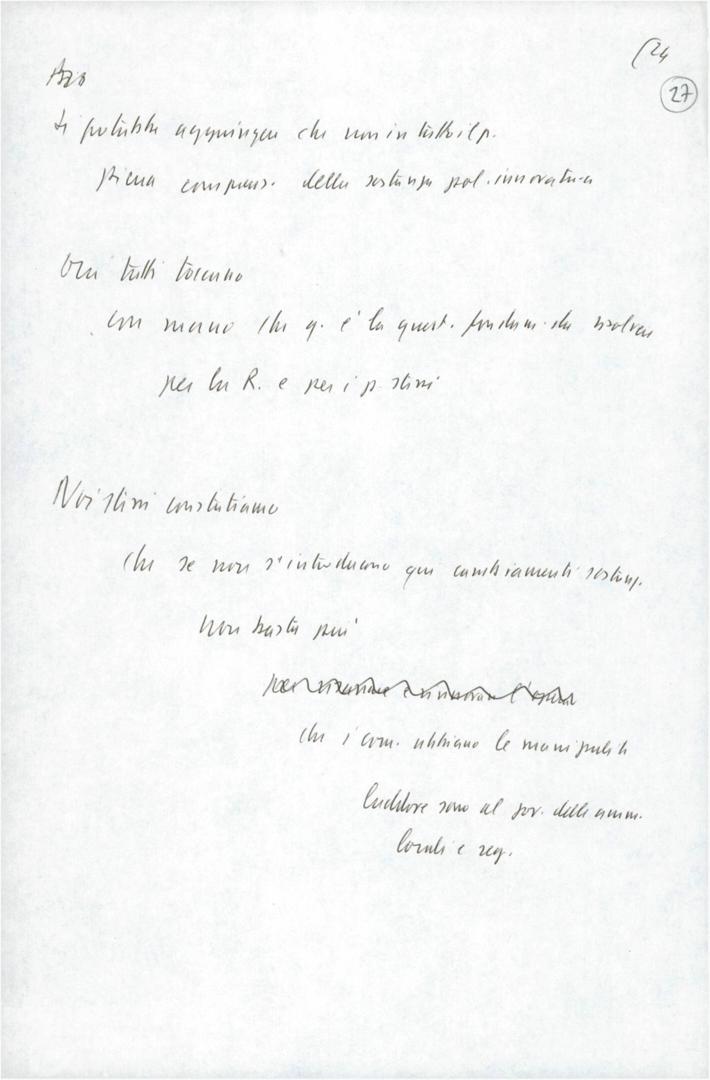 (24
27
Si potrebbe aggiungere che non in tutto il p.
piena comprens. della sostanza pol. innovativa
Ora tutti toccano
con mano che q. è la quest. fondam. da risolvere
per la R. e per i p. stessi
Noi stessi constatiamo
che se non s'introducono qui cambiamenti sostanz.
non basta più
che i com. abbiano le mani pulite
laddove sono al gov. delle amm.
locali e reg.